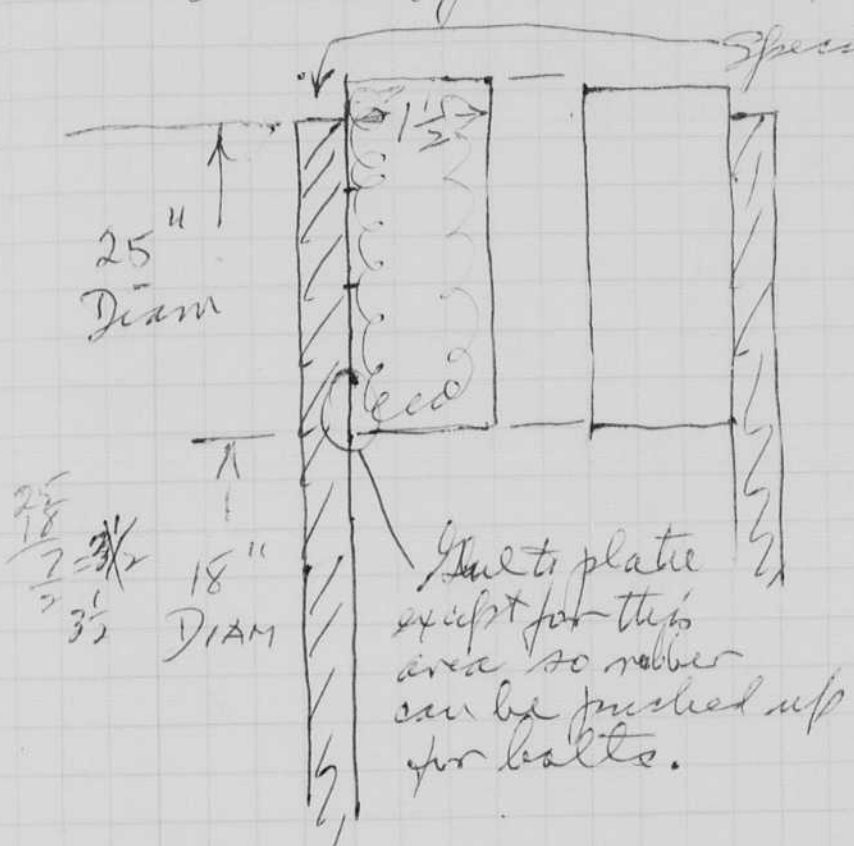 Spec
1 1/2
25"
Diam
25
18
7/2 = 3 1/2
3 1/2
18"
DIAM
plate
except for this
area so rubber
can be pushed up
for bolts.